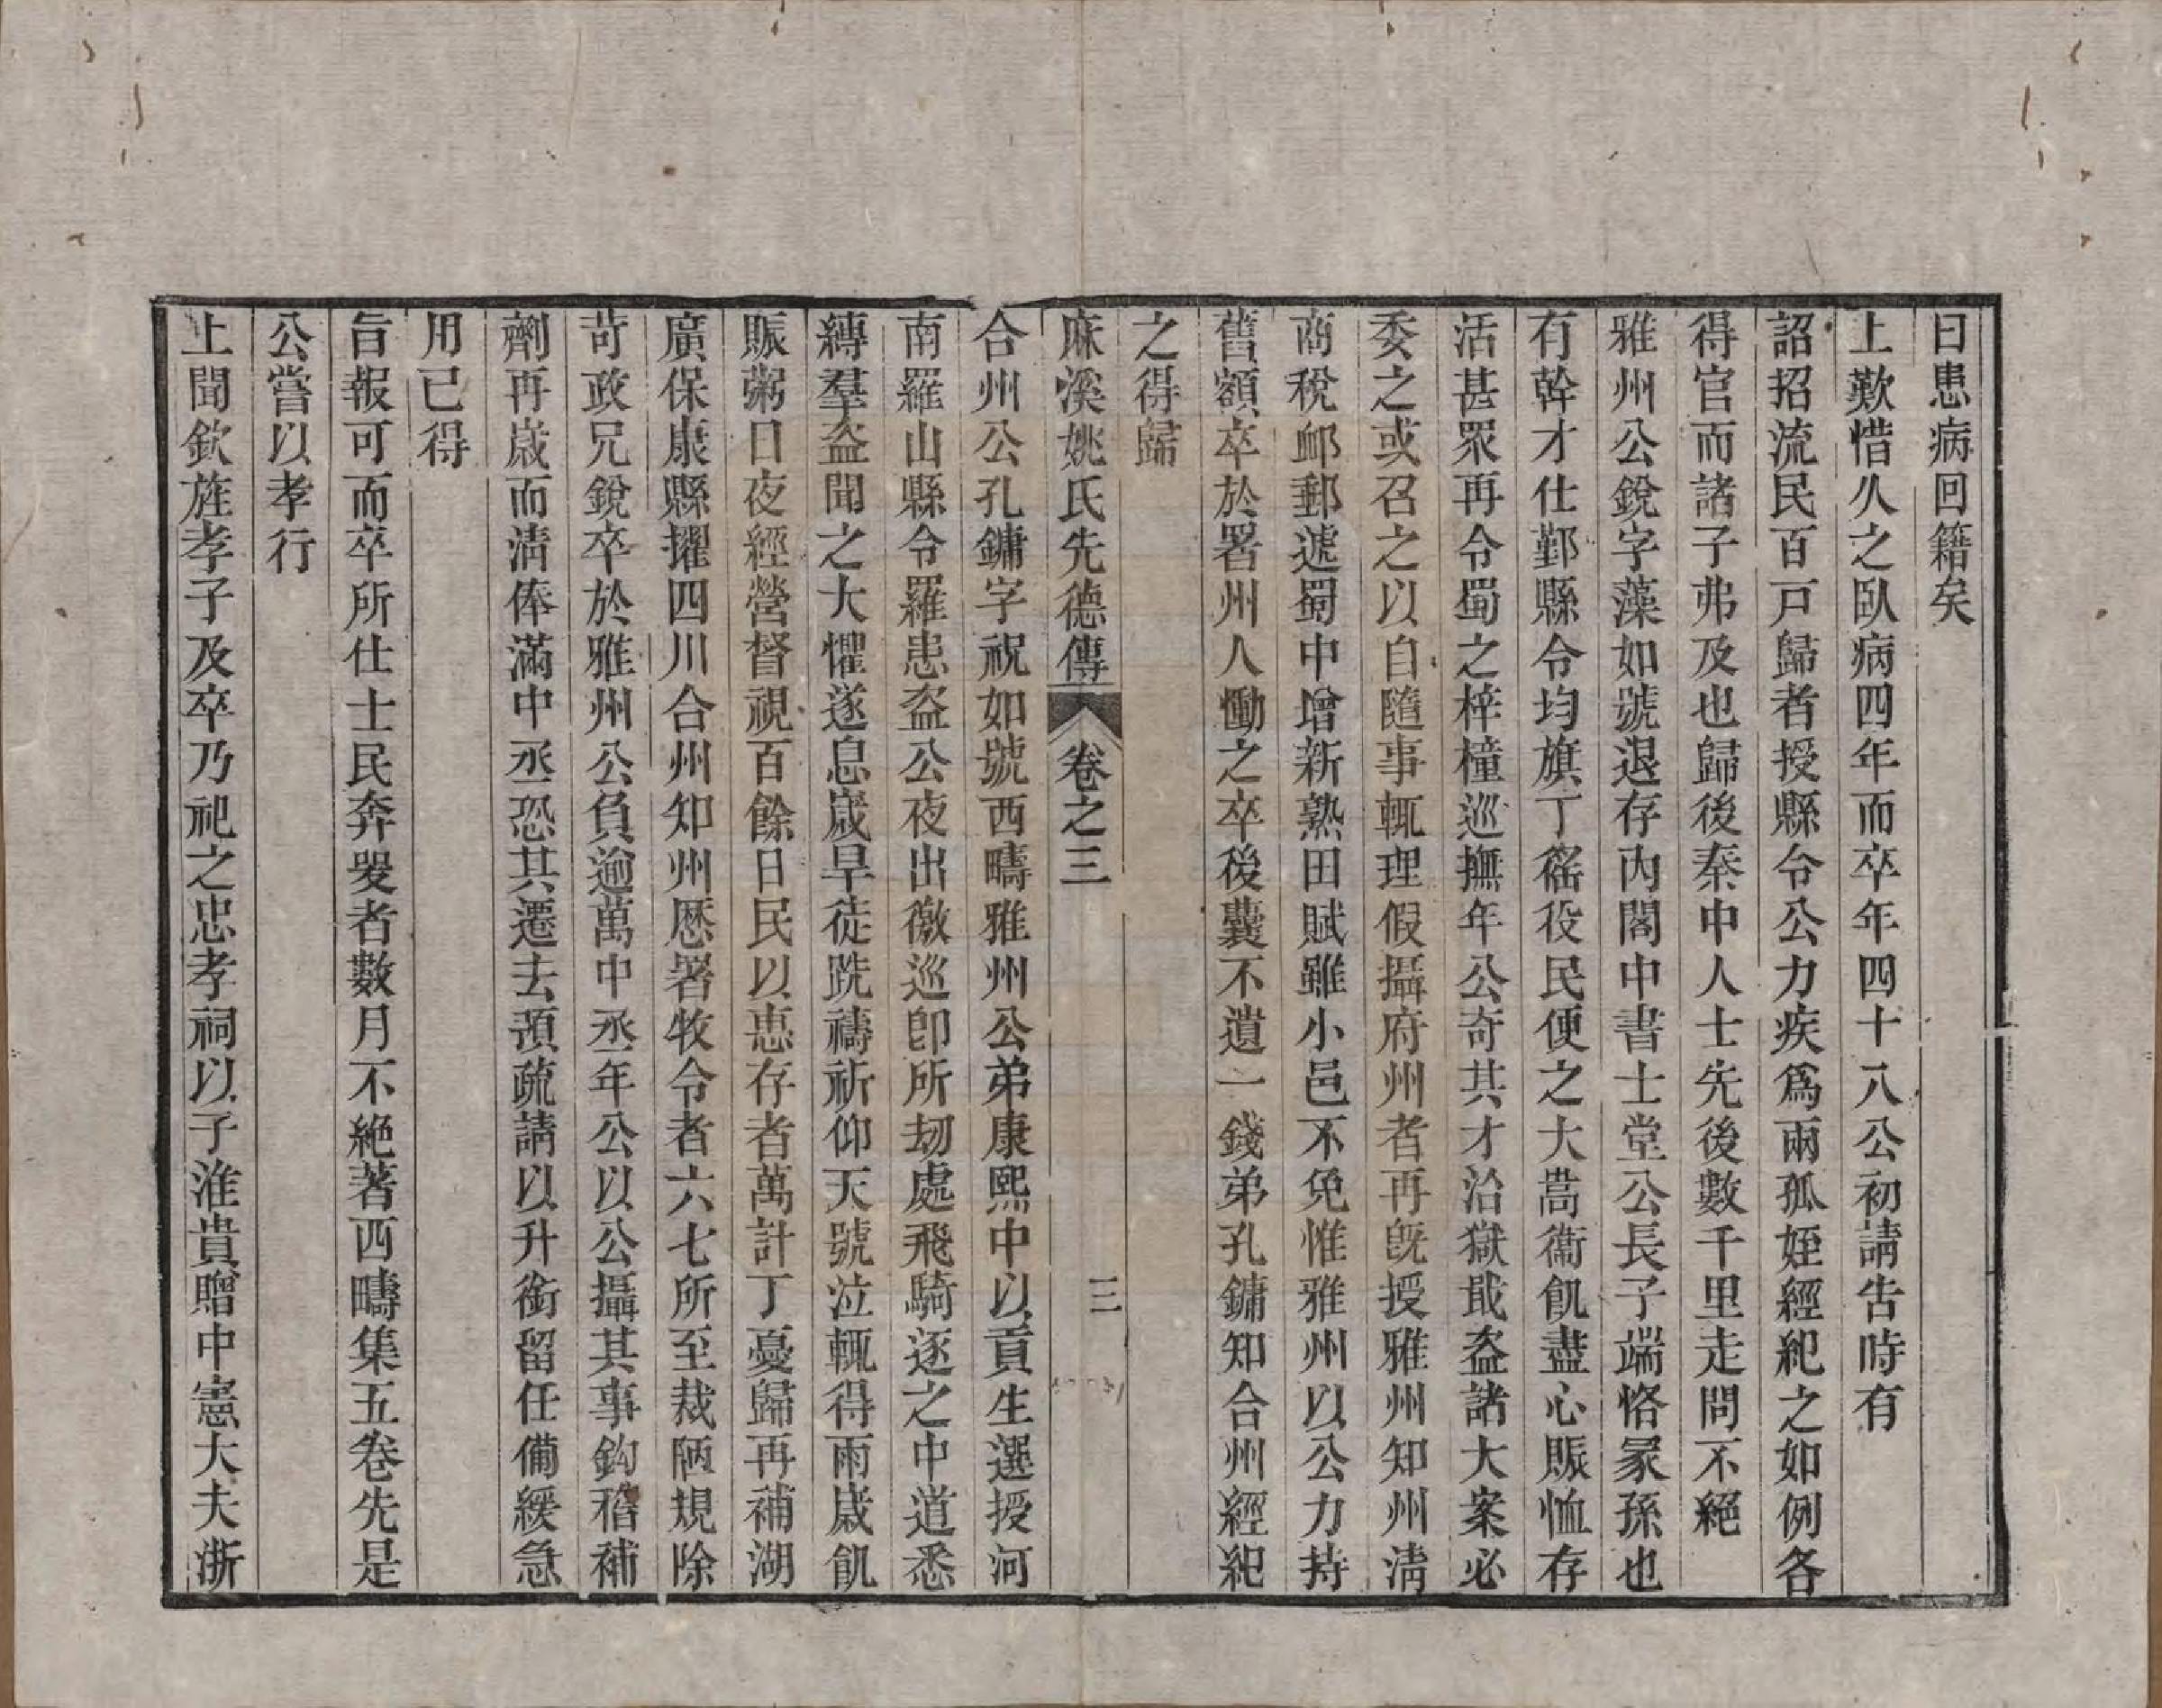 曰患病回籍矣
上歎惜久之臥病四年而卒年四十八公初請告時有
詔招流民百戸歸者授縣令公力疾爲兩孤姪經紀之如例各
得官而諸子弗及也歸後秦中人士先後數千里走問不絕
雅州公銳字藻如號退存內閣中書士堂公長子端恪冢孫也
有幹才仕鄞縣令均旗丁徭役民便之大嵩衞飢盡心賑恤存
活甚眾再令蜀之梓橦巡撫年公奇其才治獄戢盜諸大案必
委之或召之以自隨事輒理假攝府州者再旣授雅州知州清
商稅䘏郵遞蜀中增新熟田賦雖小邑不免惟雅州以公力持
舊額卒於署州人慟之卒後囊不遺一錢弟孔鏞知合州經紀
之得歸
麻溪姚氏先德傳 卷之三 三
合州公孔鏞字祝如號西疇雅州公弟康熙中以貢生選授河
南羅山縣令羅患盜公夜出徼巡卽所刼處飛騎逐之中道悉
縛羣盜聞之大懼遂息歲旱徒跣禱祈仰天號泣輒得雨歲飢
賑粥日夜經營督視百餘日民以惠存者萬計丁憂歸再補湖
廣保康縣擢四川合州知州厯署牧令者六七所至裁陋規除
苛政兄銳卒於雅州公負逾萬中丞年公以公攝其事鈎稽補
劑再歲而清俸滿中丞恐其遷去預疏請以升銜留任備緩急
用已得
旨報可而卒所仕士民奔哭者數月不絕著西疇集五卷先是
公嘗以孝行
上聞欽旌孝子及卒乃祀之忠孝祠以子淮貴贈中憲大夫浙